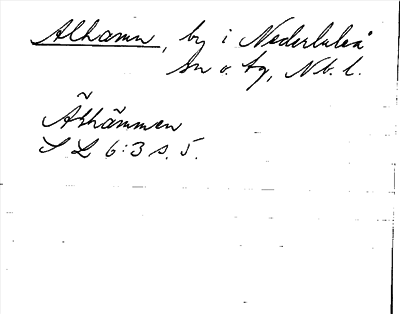 Alhamn, by i Nederluleå
sn o. tg, Nb. l.
Ãlhãmmen
S L 6:3 s. 5.